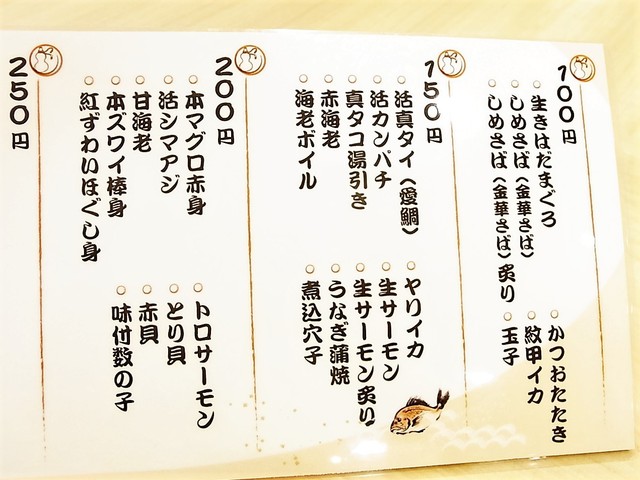 100円
生きはだまぐろ
しめさば（金華さば）
しめさば（金華さば）炙り
かつおたたき
紋甲イカ
玉子
150円
活真タイ（愛鯛）
活カンパチ
真タコ湯引き
赤海老
海老ボイル
ヤリイカ
生サーモン
生サーモン炙り
うなぎ蒲焼
煮込穴子
200円
本マグロ赤身
活シマアジ
甘海老
本ズワイ棒身
紅ずわいほぐし身
トロサーモン
とり貝
赤貝
味付数の子
250円